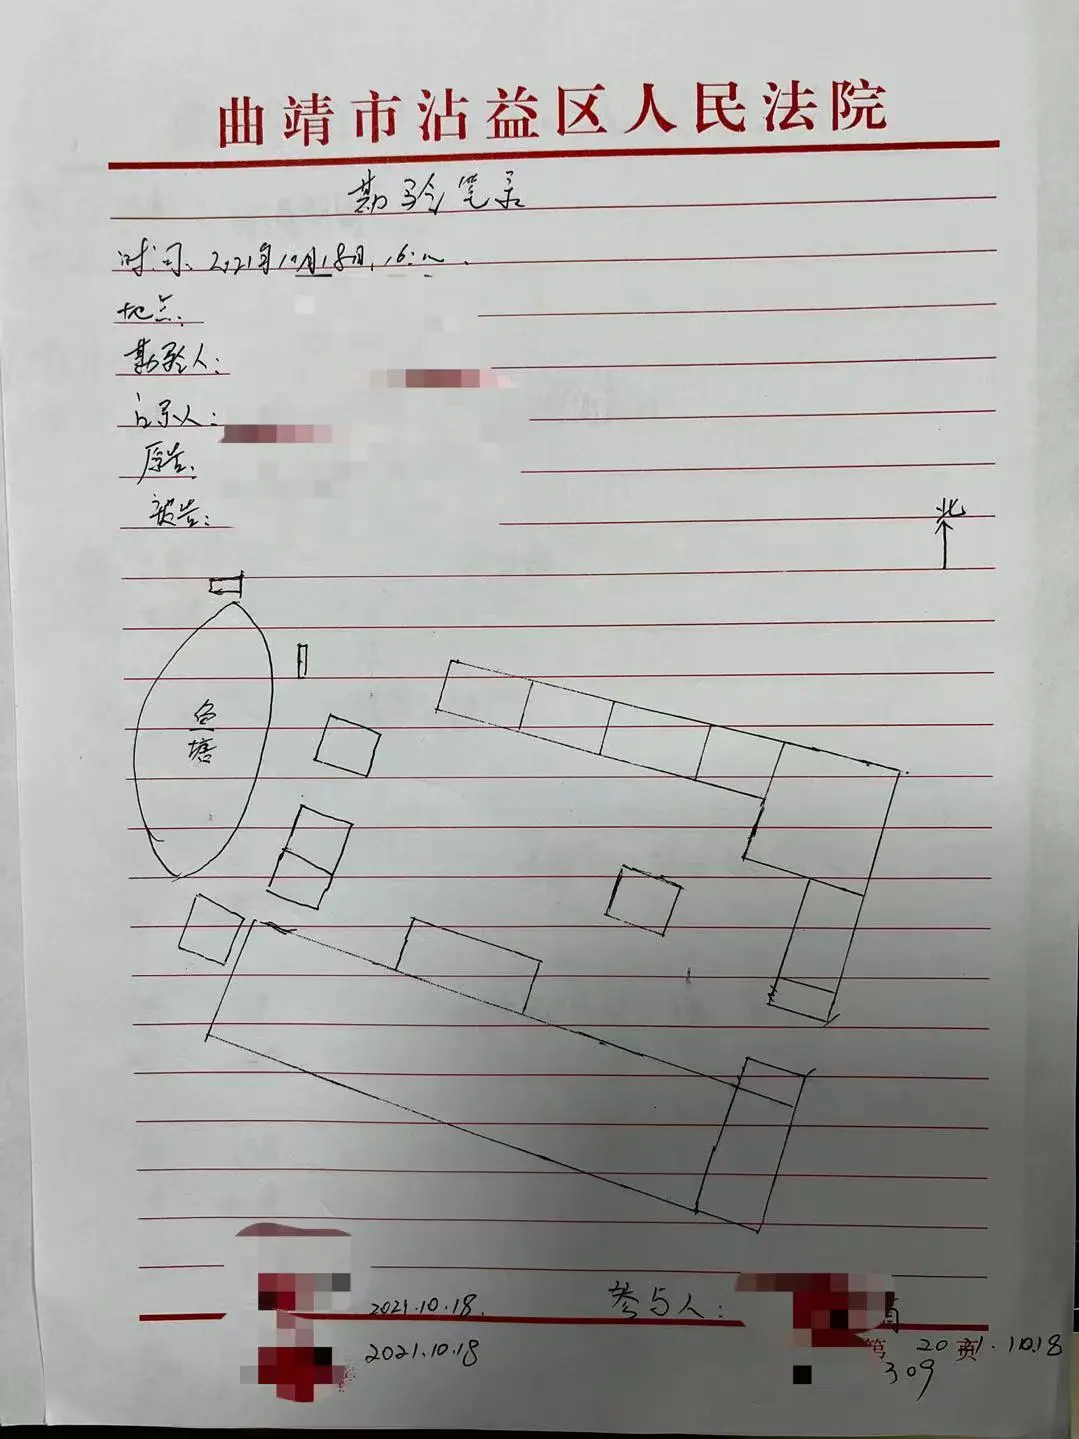 曲靖市沾益区人民法院
勘验笔录
时间：2021年10月18日，16:
地点：
勘验人：
记录人：
原告：
被告：
北
鱼塘
2021.10.18.
参与人：
2021.10.18
第 页
2021.10.18
309